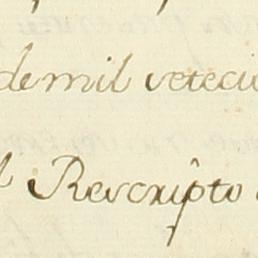 de mil seteci
l Rescripto